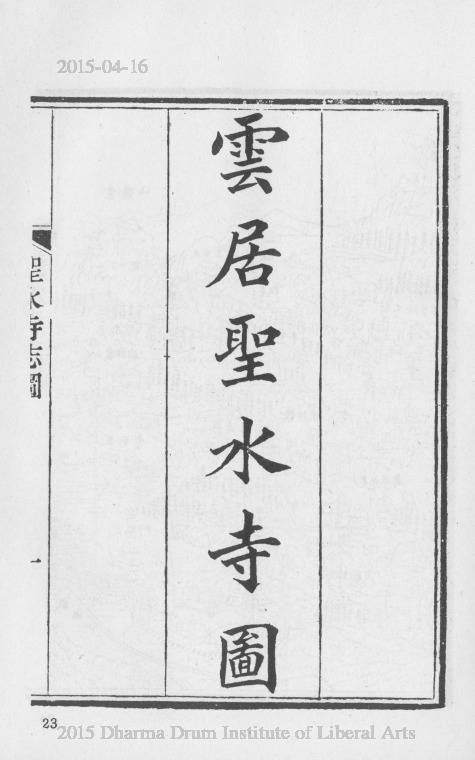 2015-04-16
雲居聖水寺圖
聖水寺志圖
一
23
2015 Dharma Drum Institute of Liberal Arts